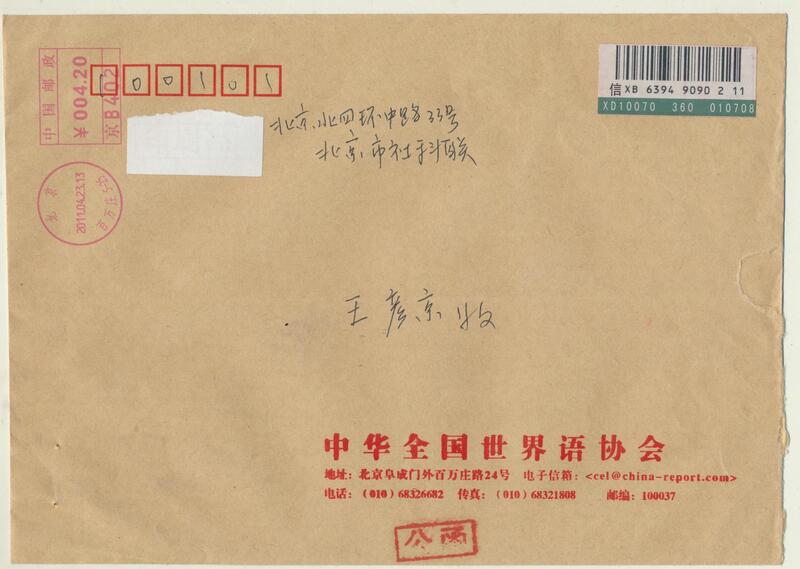 中国邮政
¥004.20
京B402
100101
信XB 6394 9090 2 11
XD10070 360 010708
北京北四环中路33号
北京市社科联
北京
2011.04.23.13
王彦京收
中华全国世界语协会
地址：北京阜成门外百万庄路24号 电子信箱：<cel@china-report.com>
电话：（010）68326682 传真：（010）68321808 邮编：100037
公函